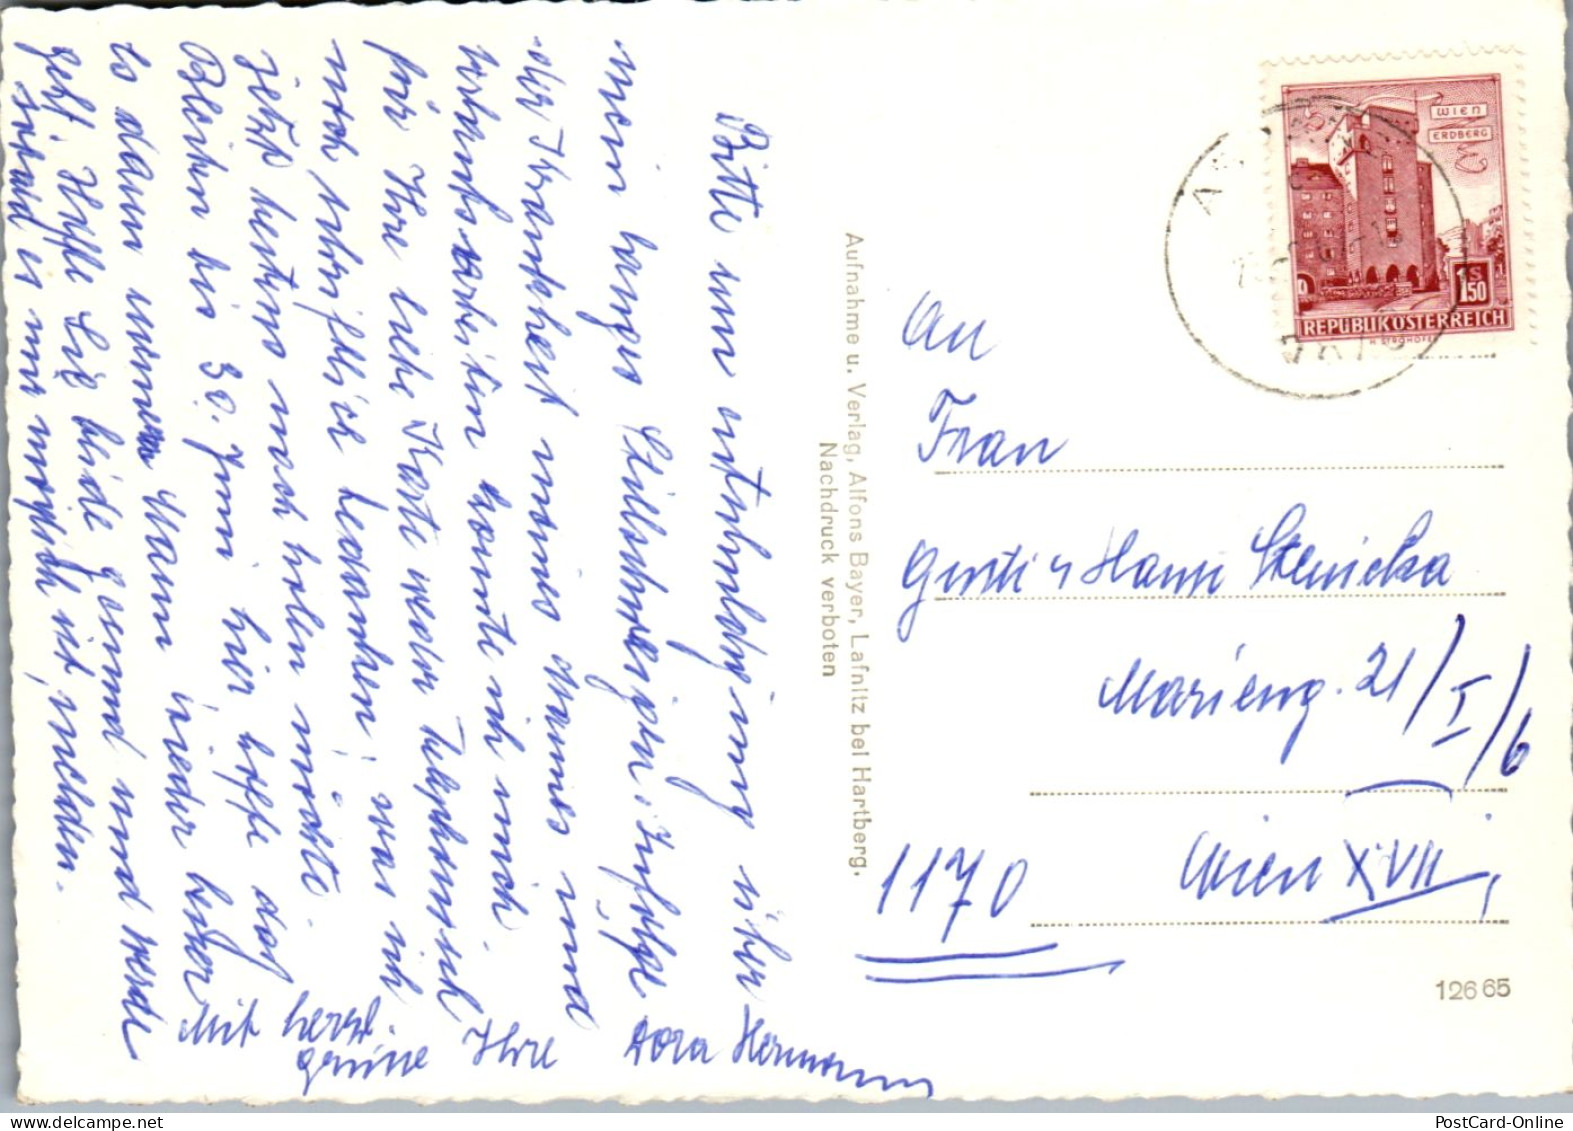 Bitte um entschuldigung über
mein langes Stillschweigen, Infolge
der Krankheit meines Mannes und
konnte ich mich
für Ihre liebe Karte weder Telefonisch
noch schriftlich bedanken, was ich
jetzt bestens nachholen möchte.
Bleiben bis 30. Juni hier hoffe daß
es dann meinem Mann wieder besser
geht. Hoffe Sie beide gesund und werde
sobald es mir möglich ist, melden.
Mit herzl.
grüße Ihre Dora Hermann
Aufnahme u. Verlag, Alfons Bayer, Lafnitz bei Hartberg.
Nachdruck verboten
WIEN
ERDBERG
1S
50
REPUBLIK ÖSTERREICH
H. STROHOFER
An
Frau
Gusti u Hansi Stenicka
Marieng. 21/I/6
Wien XVII,
1170
126 65
PostCard-Online